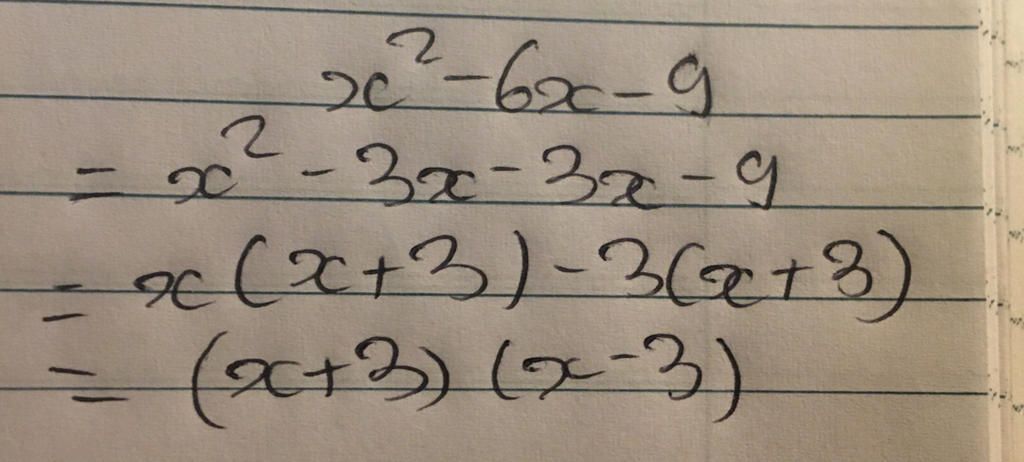 x² - 6x - 9
= x² - 3x - 3x - 9
= x(x+3) - 3(x+3)
= (x+3)(x-3)